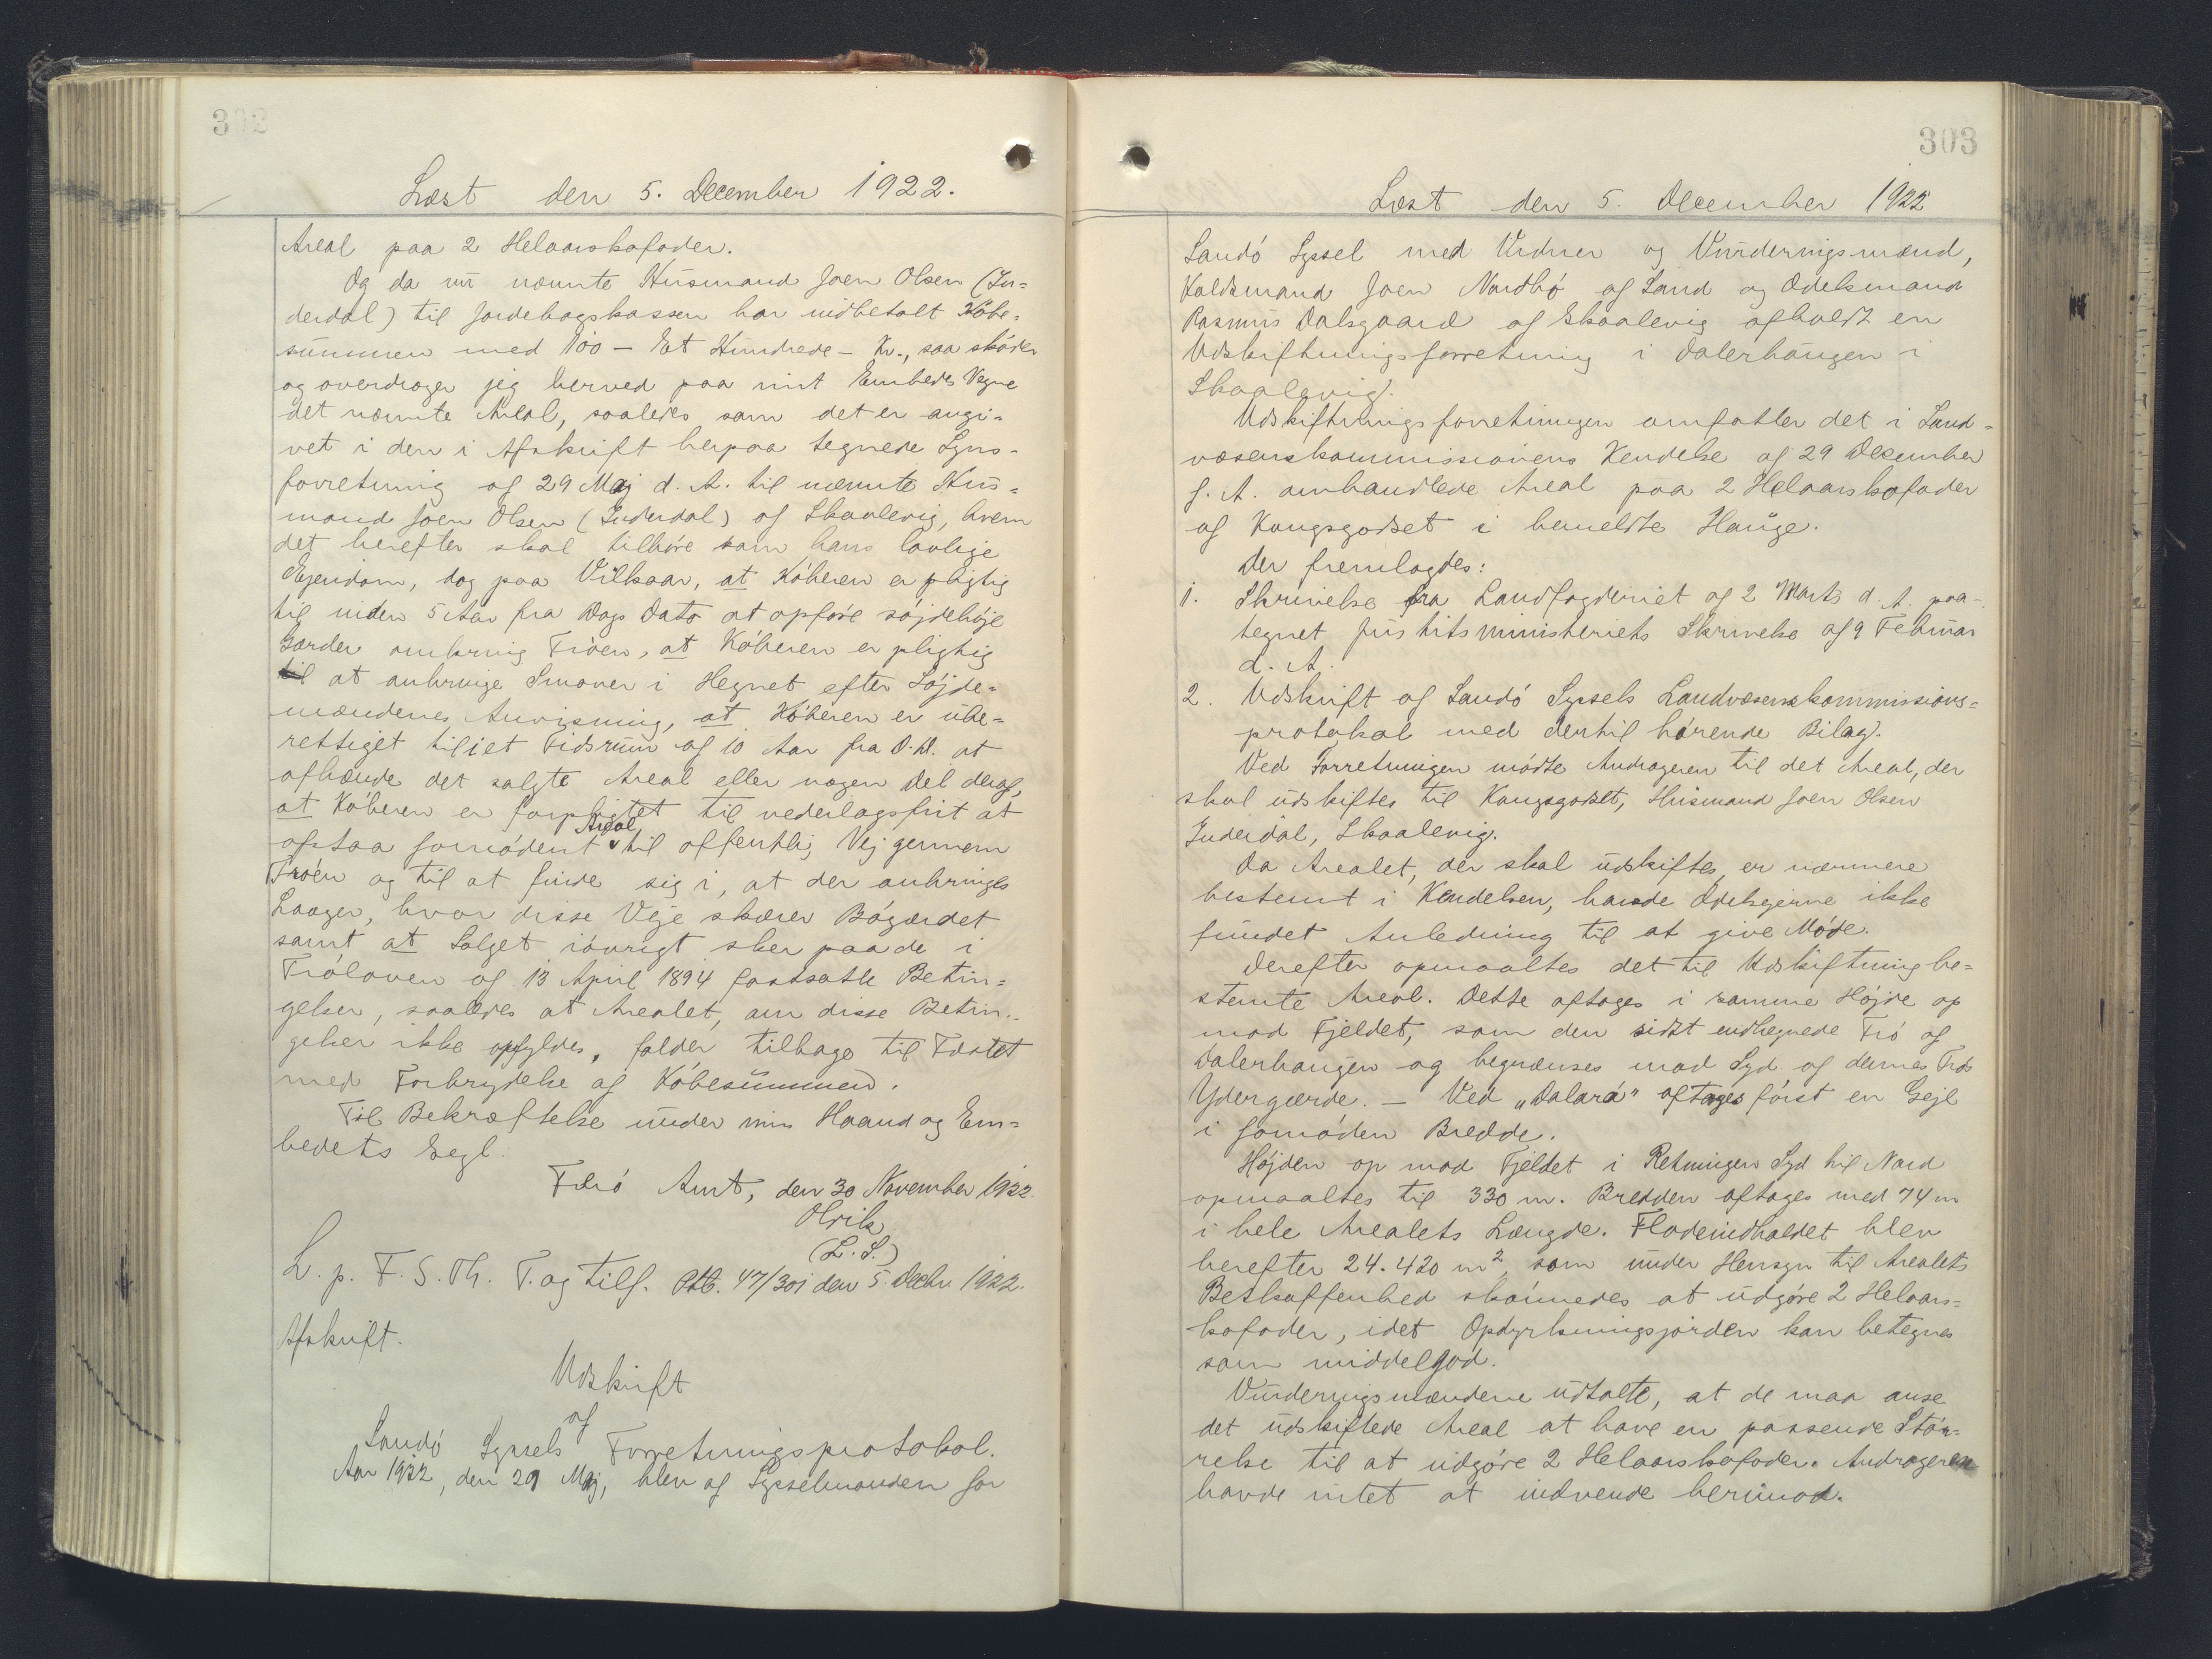 302
Læst den 5. December 1922.
Areal paa 2 Helaarskofoder.
Og da nu nævnte Husmand Joen Olsen (In=
derdal) til Jordebogskassen har indbetalt Købe=
summen med 100 - Et Hundrede - Kr., saa skøder
og overdrager jeg herved paa mit Embeds Vegne
det nævnte Areal, saaledes som det er angi=
vet i den i Afskrift herpaa tegnede Syns-
forretning af 29 Maj d. A. til nævnte Hus=
mand Joen Olsen (Inderdal) af Skaalevig, hvem
det herefter skal tilhøre som hans lovlige
Ejendom, dog paa Vilkaar, at Køberen er pligtig
til inden 5 Aar fra Dags Dato at opføre søjdehøje
Gærder omkring Trøen, at Køberen er pligtig
til at anbringe Smover i Hegnet efter Søjde=
mændenes Anvisning, at Køberen er ube=
rettiget til i et Tidsrum af 10 Aar fra D.D. at
afhænde det solgte Areal eller nogen Del deraf,
at Køberen er forpligtet til vederlagsfrit at
Areal
afstaa fornødent til offentlig Vej gennem
Trøen og til at finde sig i, at der anbringes
Laager, hvor disse Veje skærer Bøgærdet
samt at Salget iøvrigt sker paa de i
Trøloven af 13 April 1894 fastsatte Betin=
gelser, saaledes at Arealet, om disse Betin=
gelser ikke opfyldes, falder tilbage til Fæstet
med Forbrydelse af Købesummen.
Til Bekræftelse under min Haand og Em=
bedets Segl.
Færø Amt, den 30 November 1922.
Olrik
(L.S.)
L. p. F. S. Th. T. og tilf. Ptb. 47/301 den 5. Decbr. 1922.
Afskrift.
Udskrift
af
Sandø Syssels Forretningsprotokol.
Aar 1922, den 29 Maj, blev af Sysselmanden for
303
Læst den 5. December 1922
Sandø Syssel med Vidner og Vurderingsmænd,
Koldsmand Joen Nordbø af Sand og Odelsmand
Rasmus Dalsgaard af Skaalevig afholdt en
Udskiftningsforretning i Dalerhaugen i
Skaalevig.
Udskiftningsforretningen omfatter det i Land=
væsenskommissionens Kendelse af 29 December
f. A. omhandlede Areal paa 2 Helaarskofoder
af Kongsgodset i bemeldte Hauge.
Der fremlagdes:
1. Skrivelse fra Landfogderiet af 2 Marts d. A. paa-
tegnet Justitsministeriets Skrivelse af 9 Februar
d. A.
2. Udskrift af Sandø Syssels Landvæsenskommissions=
protokol med dertil hørende Bilag.
Ved Forretningen mødte Andrageren til det Areal, der
skal udskiftes til Kongsgodset, Husmand Joen Olsen
Inderdal, Skaalevig.
Da Arealet, der skal udskiftes, er nærmere
bestemt i Kendelsen, havde Odelsejerne ikke
fundet Anledning til at give Møde.
Derefter opmaaltes det til Udskiftning be=
stemte Areal. Dette aftages i samme Højde op
mod Fjeldet, som den sidst endhegnede Trø af
Dalerhaugen og begrænses mod Syd af dennes Trøs
Ydergærde. - Ved "Dalará" aftages først en Gejl
i fornøden Bredde.
Højden op mod Fjeldet i Retningen Syd til Nord
opmaaltes til 330 m. Bredden aftages med 74 m
i hele Arealets Længde. Fladeindholdet blev
herefter 24.420 m², som under Hensyn til Arealets
Beskaffenhed skønnedes at udgøre 2 Helaars=
kofoder, idet Opdyrkningsjorden kan betegnes
som middelgod.
Vurderingsmændene udtalte, at de maa anse
det udskiftede Areal at have en passende Stør=
relse til at udgøre 2 Helaarskofoder. Andrageren
havde intet at indvende herimod.